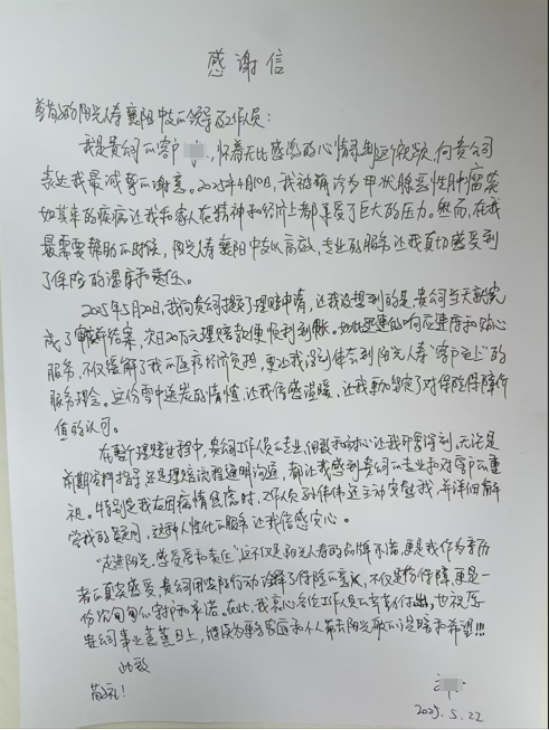 感谢信
尊敬的阳光人寿襄阳中支的领导及工作人员：
我是贵公司的客户，怀着无比感激的心情写到这份视频，向贵公司
表达我最诚挚的谢意。2025年4月10日，我被确诊为甲状腺恶性肿瘤，突
如其来的疾病让我和家人在精神和经济上都承受了巨大的压力。然而，在我
最需要帮助的时候，阳光人寿襄阳中支以高效、专业的服务让我真切感受到
了保险的温度和责任。
2025年5月20日，我向贵公司提交了理赔申请，让我没想到的是，贵公司当天就完
成了审核并结案，次日20万元理赔款便顺利到账。如此迅速的响应速度和贴心
服务，不仅缓解了我的医疗经济负担，更让我深刻体会到阳光人寿“客户至上”的
服务理念。这份雪中送炭的情谊，让我倍感温暖，让我更加坚定了对保险保障价
值的认可。
在整个理赔过程中，贵公司工作人员的专业、细致和耐心让我印象深刻，无论是
前期资料指导还是理赔流程透明沟通，都让我感到贵公司的专业和对客户的重
视。特别是我在因病情焦虑时，工作人员孙伟伟还主动安慰我，并详细解
答我的疑问，这种人性化的服务让我倍感安心。
“走进阳光，感受爱和责任”这不仅是阳光人寿的品牌承诺，更是我作为亲历
者的真实感受，贵公司用实际行动诠释了保险的意义，不仅是份保障，更是一
份沉甸甸的守护和承诺。在此，我衷心各位工作人员的辛苦付出，也祝愿
贵公司事业蒸蒸日上，继续为更多家庭和个人带去阳光般的温暖和希望!!!
此致
敬礼！
2025.5.22